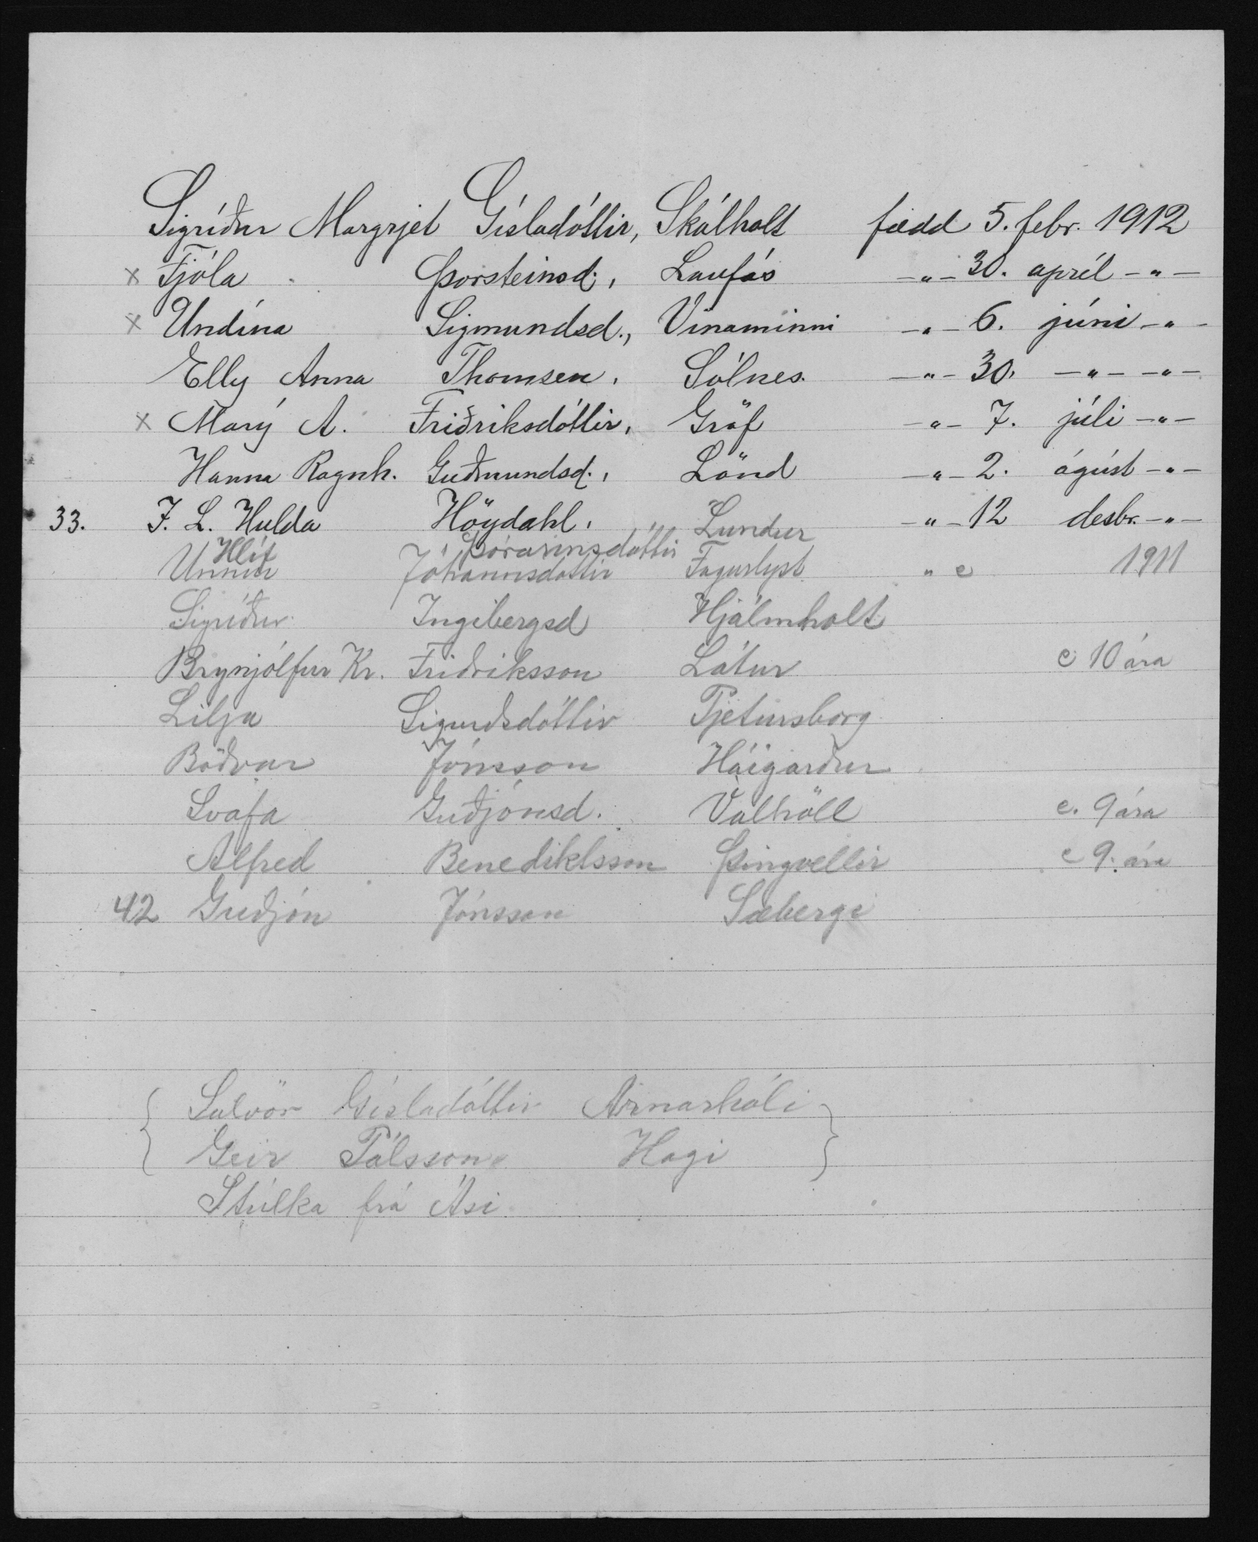 Sigríður Margrjet Gísladóttir, Skálholt fædd 5. febr. 1912
x Fjóla Þorsteinsd., Laufás —„— 30. apríl —„—
x Undína Sigmundsd., Vinaminni —„— 6. júní —„—
Elly Anna Thomsen, Sólnes. —„— 30. —„— —„—
x Marý A. Friðriksdóttir, Gröf —„— 7. júlí —„—
Hanna Ragnh. Guðmundsd., Lönd —„— 2. ágúst —„—
33. J. L. Hulda Höydahl, Lundur —„— 12 desbr. —„—
Hlíf Þórarinsdóttir
Unnur Jóhannsdóttir Fagurlyst „ c 1911
Sigríður Ingibergsd Hjálmholt
Brynjólfur Kr. Friðriksson Látur c 10 ára
Lilja Sigurðsdóttir Pjetursborg
Böðvar Jónsson Háigarður
Svafa Guðjónsd. Valhöll c. 9 ára
Alfred Benediktsson Þingvellir c 9. ára
42 Guðjón Jónsson Sæbergi
{ Salvör Gísladóttir Arnarhóli }
{ Geir Pálsson Hagi }
Stúlka frá Ási